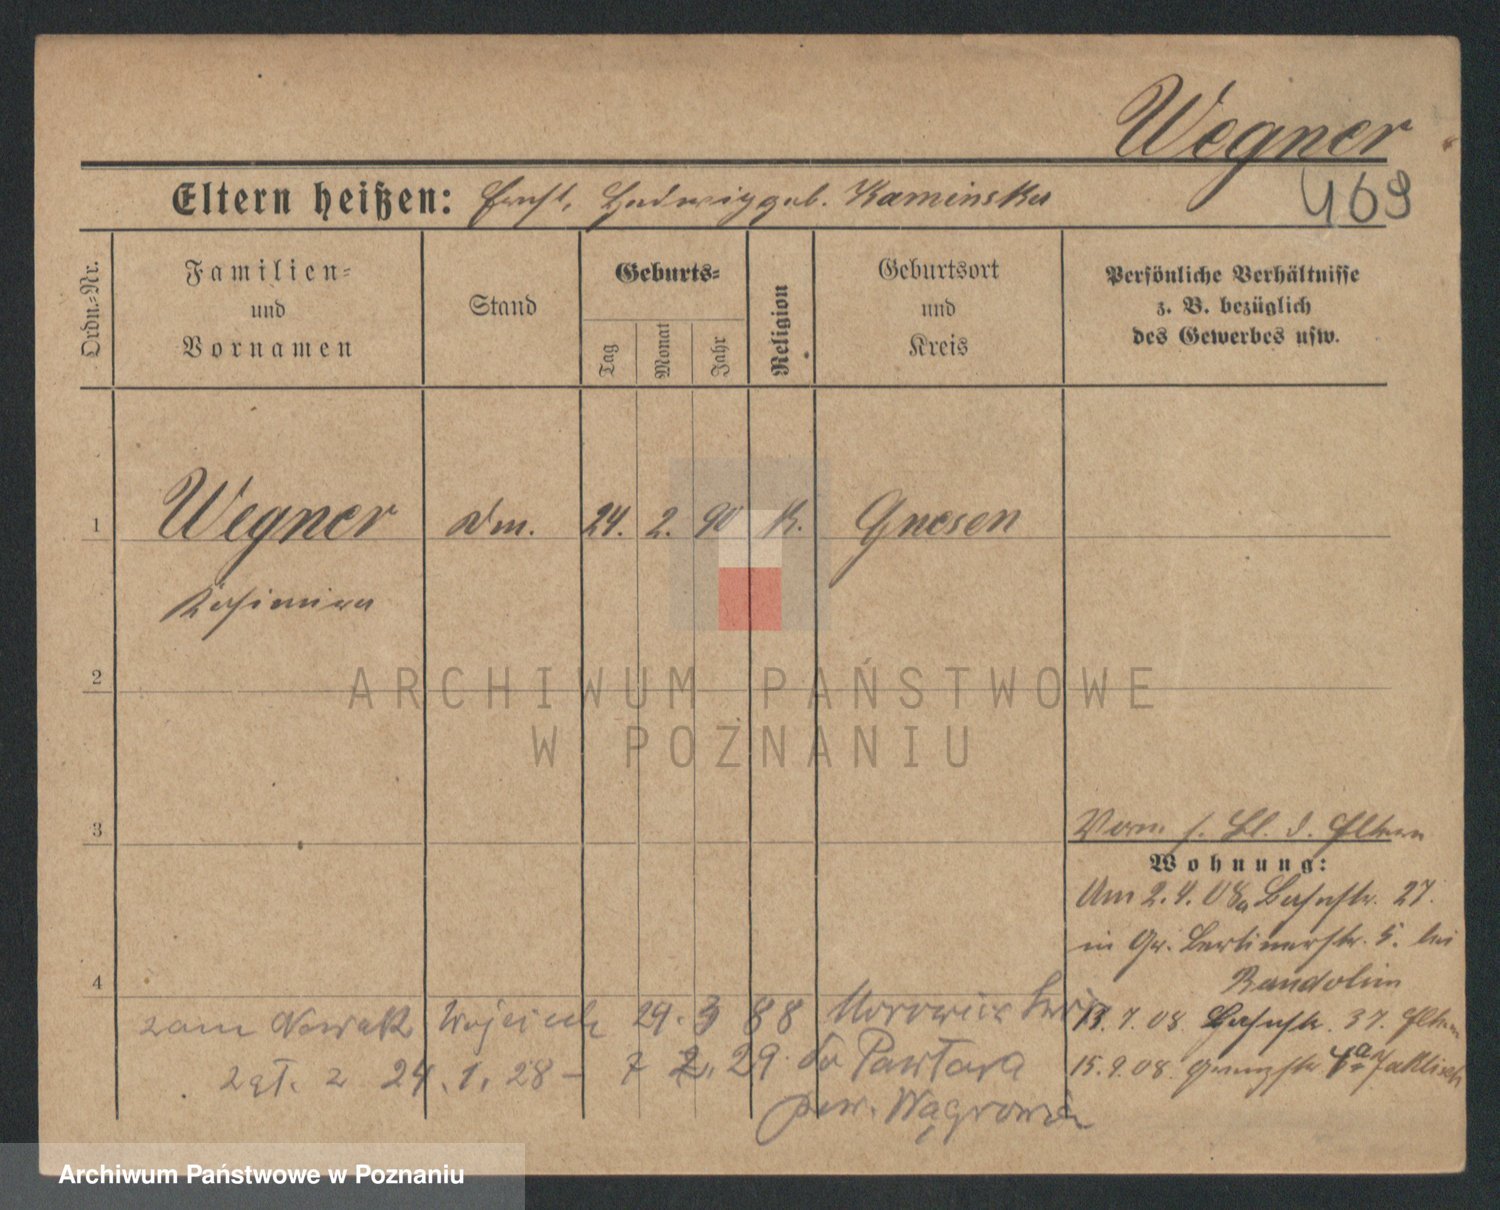 Wegner
469
Eltern heißen: Ernst, Hedwig geb. Kaminska
Ordn.-Nr.
Familien-
und
Vornamen
Stand
Geburts-
Tag
Monat
Jahr
Religion
Geburtsort
und
Kreis
Persönliche Verhältnisse
z. B. bezüglich
des Gewerbes usw.
1
Wegner
24. 2. 90
K.
Gnesen
Kasimira
2
ARCHIWUM PAŃSTWOWE
W POZNANIU
3
Vorm s. Bl. d. Eltern
Wohnung:
Am 2.4.08 Bahnstr. 27.
in Gr. Berlinerstr. 5. bei
4
zam Nowak Wojciech 29. 3 88
13.7.08 Bahnstr. 37. Eltern
zgł. z 24.1.28 – 7 2. 29. do Pawłowa
15.9.08
pow. Wągrowiec
Archiwum Państwowe w Poznaniu